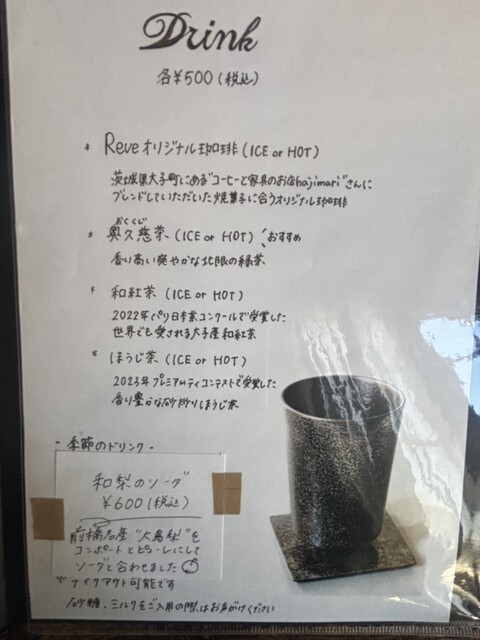 Drink
各¥500(税込)
* Reveオリジナル珈琲(ICE or HOT)
茨城県大子町にある"コーヒーと家具のお店hajimari"さんに
ブレンドしていただいた焼菓子に合うオリジナル珈琲
おくくじ
* 奥久慈茶(ICE or HOT) おすすめ
香り高い爽やかな北限の緑茶
* 和紅茶(ICE or HOT)
2022年パリ日本茶コンクールで受賞した
世界でも愛される大子産和紅茶
* ほうじ茶(ICE or HOT)
2023年プレミアムティコンテストで受賞した
香り豊かな砂炒りほうじ茶
- 季節のドリンク -
和梨のソーダ
¥600(税込)
前橋名産"大島梨"を
コンポートとピューレにして
ソーダと合わせました
テイクアウト可能です
砂糖、ミルクをご入用の際はお声がけください